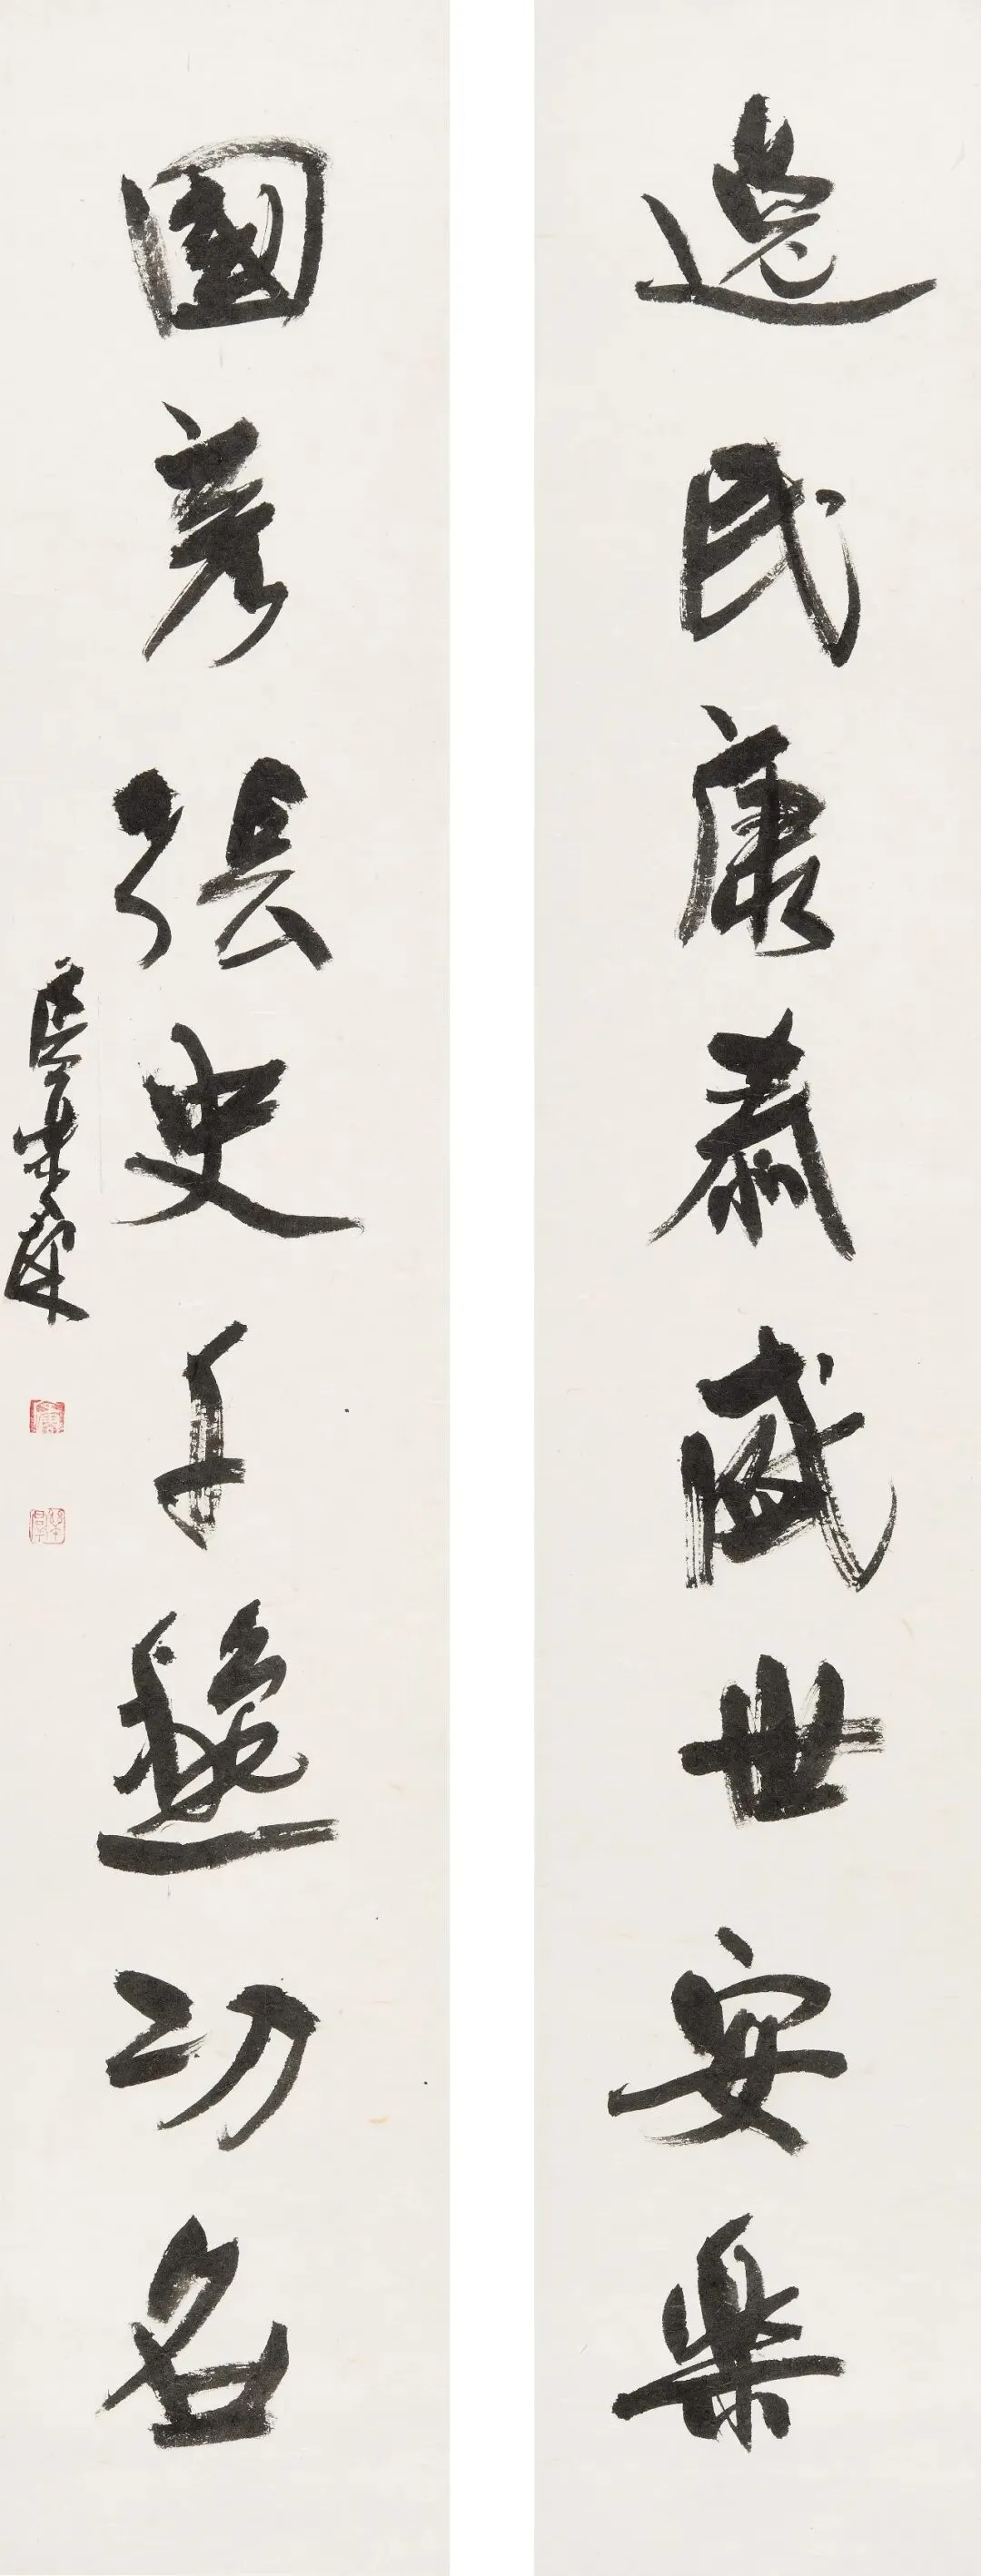 逸民康泰盛世安樂
國彥張史千功名